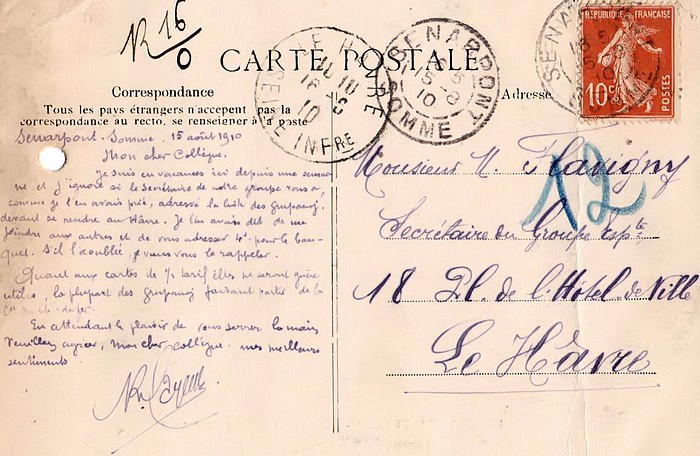 R 16/0
CARTE POSTALE
Correspondance
Tous les pays étrangers n'acceptent pas la
correspondance au recto, se renseigner à la poste
Adresse
REPUBLIQUE FRANÇAISE
10c
POSTES
LE HAVRE
SEINE INFRE
SENARPONT
15-8
10
SOMME
Senarpont. Somme. 15 août 1910
Mon cher Collègue.
Je suis en vacances ici depuis une semai-
ne et j'ignore si le Secrétaire de notre groupe vous a,
comme je l'en avais prié, adressé la liste des
devant se rendre au Hâvre. Je lui avais dit de me
joindre aux autres et de vous adresser 4f. pour le ban-
quet. S'il l'a oublié, je viens vous le rappeler.
Quant aux cartes de ½ tarif elles ne seront guère
utiles, la plupart des faisant partie de la
Cie du ch. de fer.
En attendant le plaisir de vous serrer la main,
Veuillez agréer, mon cher collègue mes meilleurs
sentiments.
Monsieur M. Flavigny
12
Secrétaire du Groupe Espte
18 Pl. de l'Hôtel de Ville
Le Hâvre